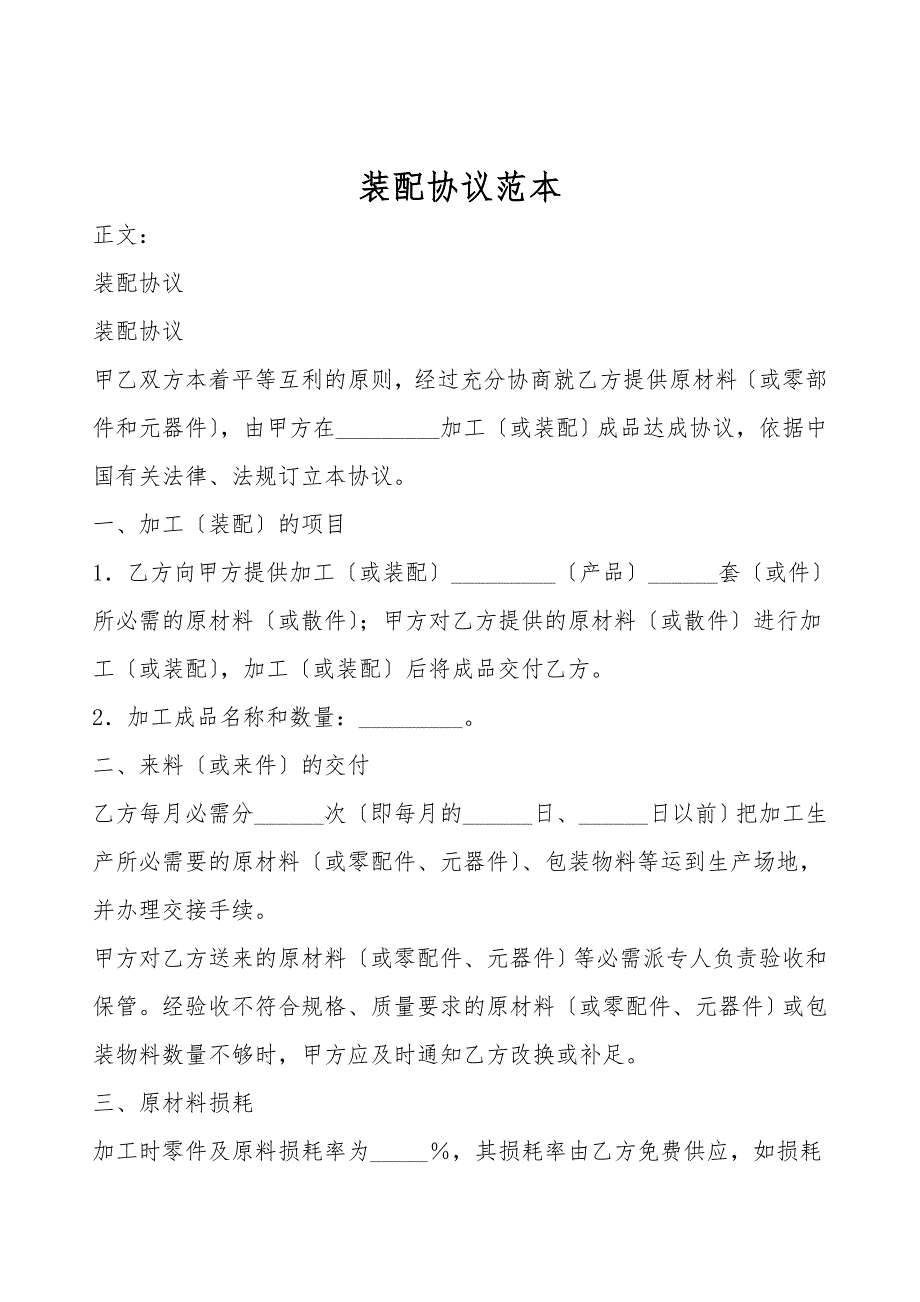 装配协议范本
正文：
装配协议
装配协议
甲乙双方本着平等互利的原则，经过充分协商就乙方提供原材料〔或零部
件和元器件〕，由甲方在_________加工〔或装配〕成品达成协议，依据中
国有关法律、法规订立本协议。
一、加工〔装配〕的项目
1．乙方向甲方提供加工〔或装配〕_________〔产品〕______套〔或件〕
所必需的原材料〔或散件〕；甲方对乙方提供的原材料〔或散件〕进行加
工〔或装配〕，加工〔或装配〕后将成品交付乙方。
2．加工成品名称和数量：_________。
二、来料〔或来件〕的交付
乙方每月必需分______次〔即每月的______日、______日以前〕把加工生
产所必需要的原材料〔或零配件、元器件〕、包装物料等运到生产场地，
并办理交接手续。
甲方对乙方送来的原材料〔或零配件、元器件〕等必需派专人负责验收和
保管。经验收不符合规格、质量要求的原材料〔或零配件、元器件〕或包
装物料数量不够时，甲方应及时通知乙方改换或补足。
三、原材料损耗
加工时零件及原料损耗率为_____％，其损耗率由乙方免费供应，如损耗